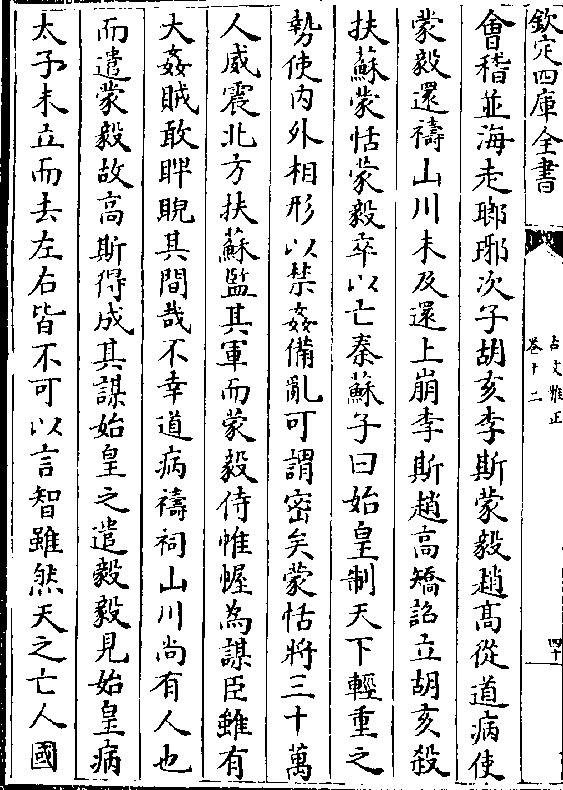 欽定四庫全書
古文雅正
卷十二
四十
會稽並海走瑯琊次子胡亥李斯蒙毅趙髙從道病使
蒙毅還禱山川未及還上崩李斯趙高矯詔立胡亥殺
扶蘇蒙恬蒙毅卒以亡秦蘇子曰始皇制天下輕重之
勢使内外相形以禁姦備亂可謂密矣蒙恬將三十萬
人威震北方扶蘇監其軍而蒙毅侍帷幄為謀臣雖有
大姦賊敢睥睨其間哉不幸道病禱祠山川尚有人也
而遣蒙毅故高斯得成其謀始皇之遣毅毅見始皇病
太子未立而去左右皆不可以言智雖然天之亡人國